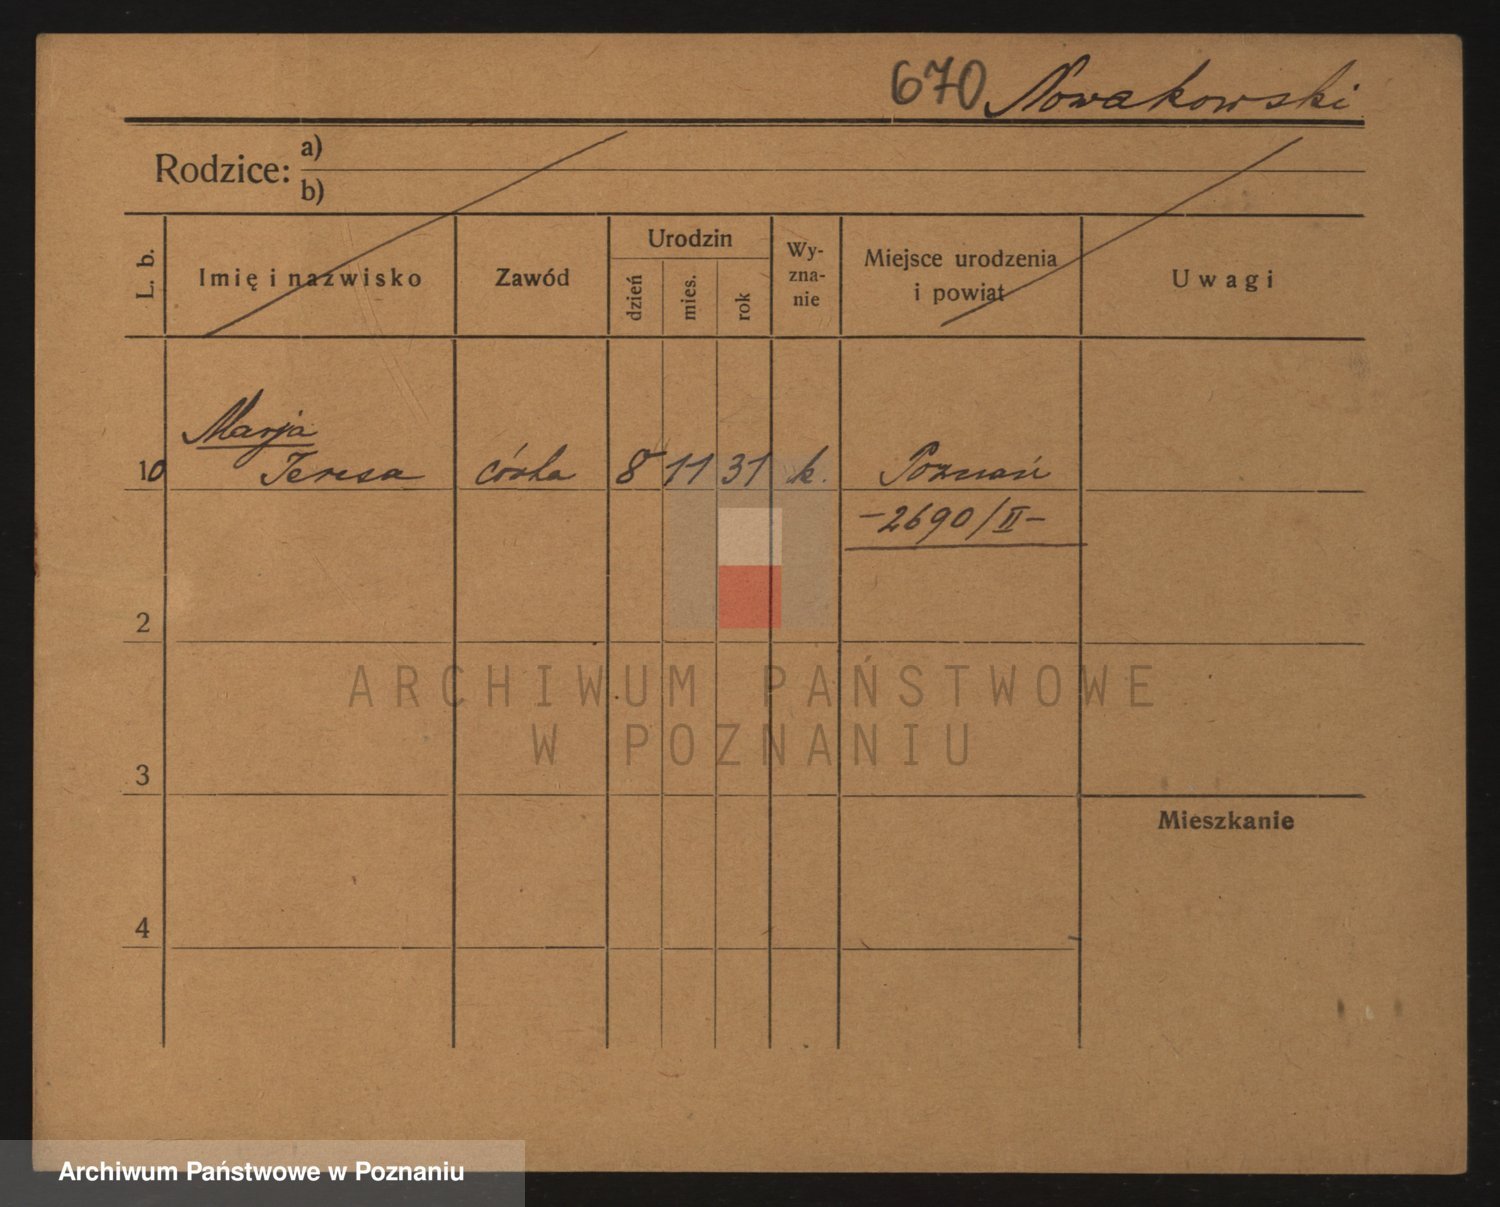 670 Nowakowski
Rodzice: a)
b)
L. b.
Imię i nazwisko
Zawód
Urodzin
dzień
mies.
rok
Wy-
zna-
nie
Miejsce urodzenia
i powiat
Uwagi
Marja
10 Teresa córka 8 11 31 k. Poznań
-2690/II-
2
ARCHIWUM PAŃSTWOWE
W POZNANIU
3
Mieszkanie
4
Archiwum Państwowe w Poznaniu